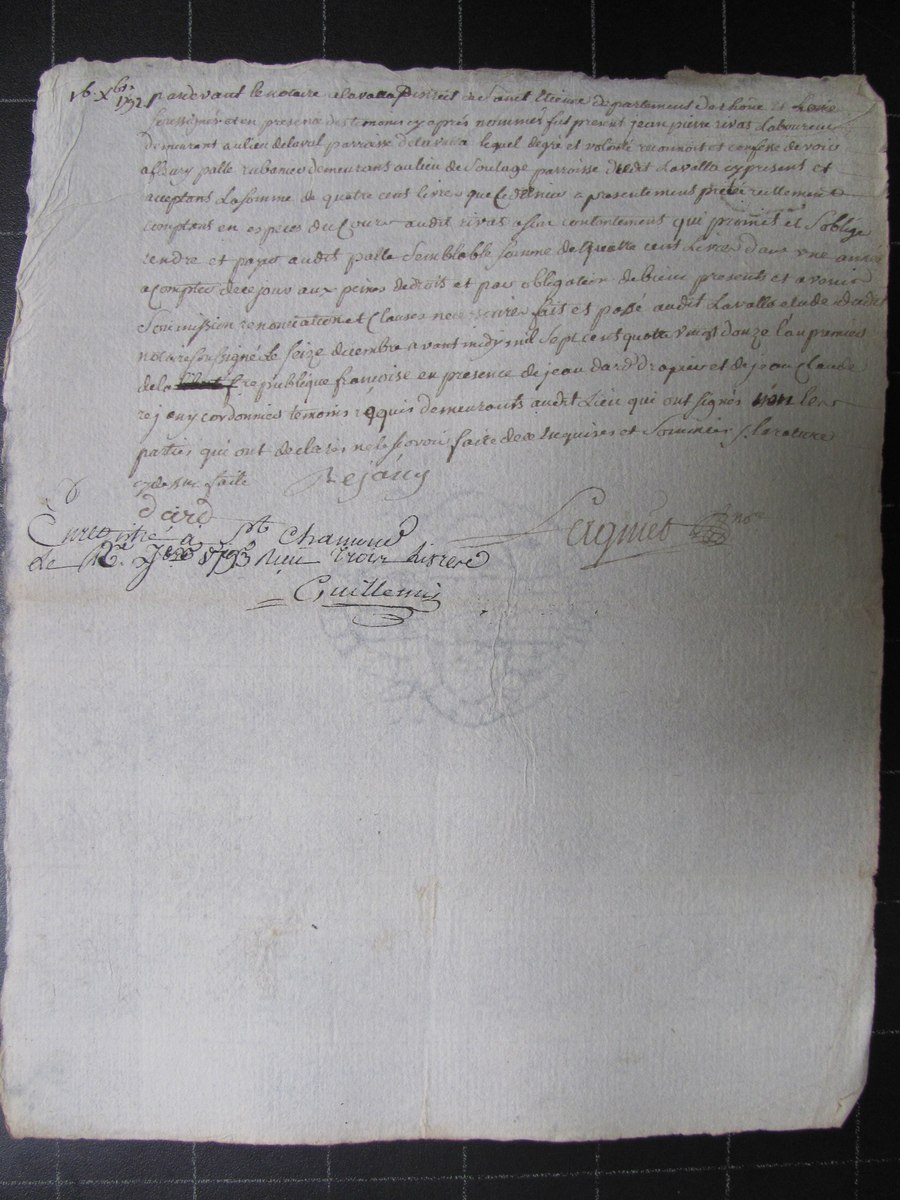 16. Xbre 1792
pardevant le notaire a Lavalla District de Saint Etienne departement de rhône et Loire
soussigné et en presence des temoins cy après nommés fut présent jean pierre rivas Laboureur
demeurant au lieu de laval parroisse de lavalla lequel de gré et volonté reconnoit et confesse devoir
a Bary palle rubanier demeurant au lieu de Soulage parroisse dudit Lavalla cy present et
acceptant La somme de quatre cent livres que ce dernier a presentement preté réellement
comptant en especes du Cours audit rivas a son contentement qui promet et s'oblige
rendre et payer audit palle Semblable somme de Quatre cent Livres dans une année
a compter de ce jour aux peines de droits et par obligation de biens presents et avenir
Soumission renonciation et Clauses necessaires fait et passé audit Lavalla etude dudit
notaire soussigné le seize decembre avant midy mil sept cent quatre vingt douze l'an premier
de la republique françoise en presence de jean dard drapier et de jean Claude
rejany cordonnier temoins requis demeurants audit Lieu qui ont signés non les
parties qui ont declarés ne le sçavoir faire de ce enquises et sommées
cydessus faite Rejány
dard
Enregistré à St Chamond Laginet nre
Le 1793 Reçu trois Livres
Guillemin